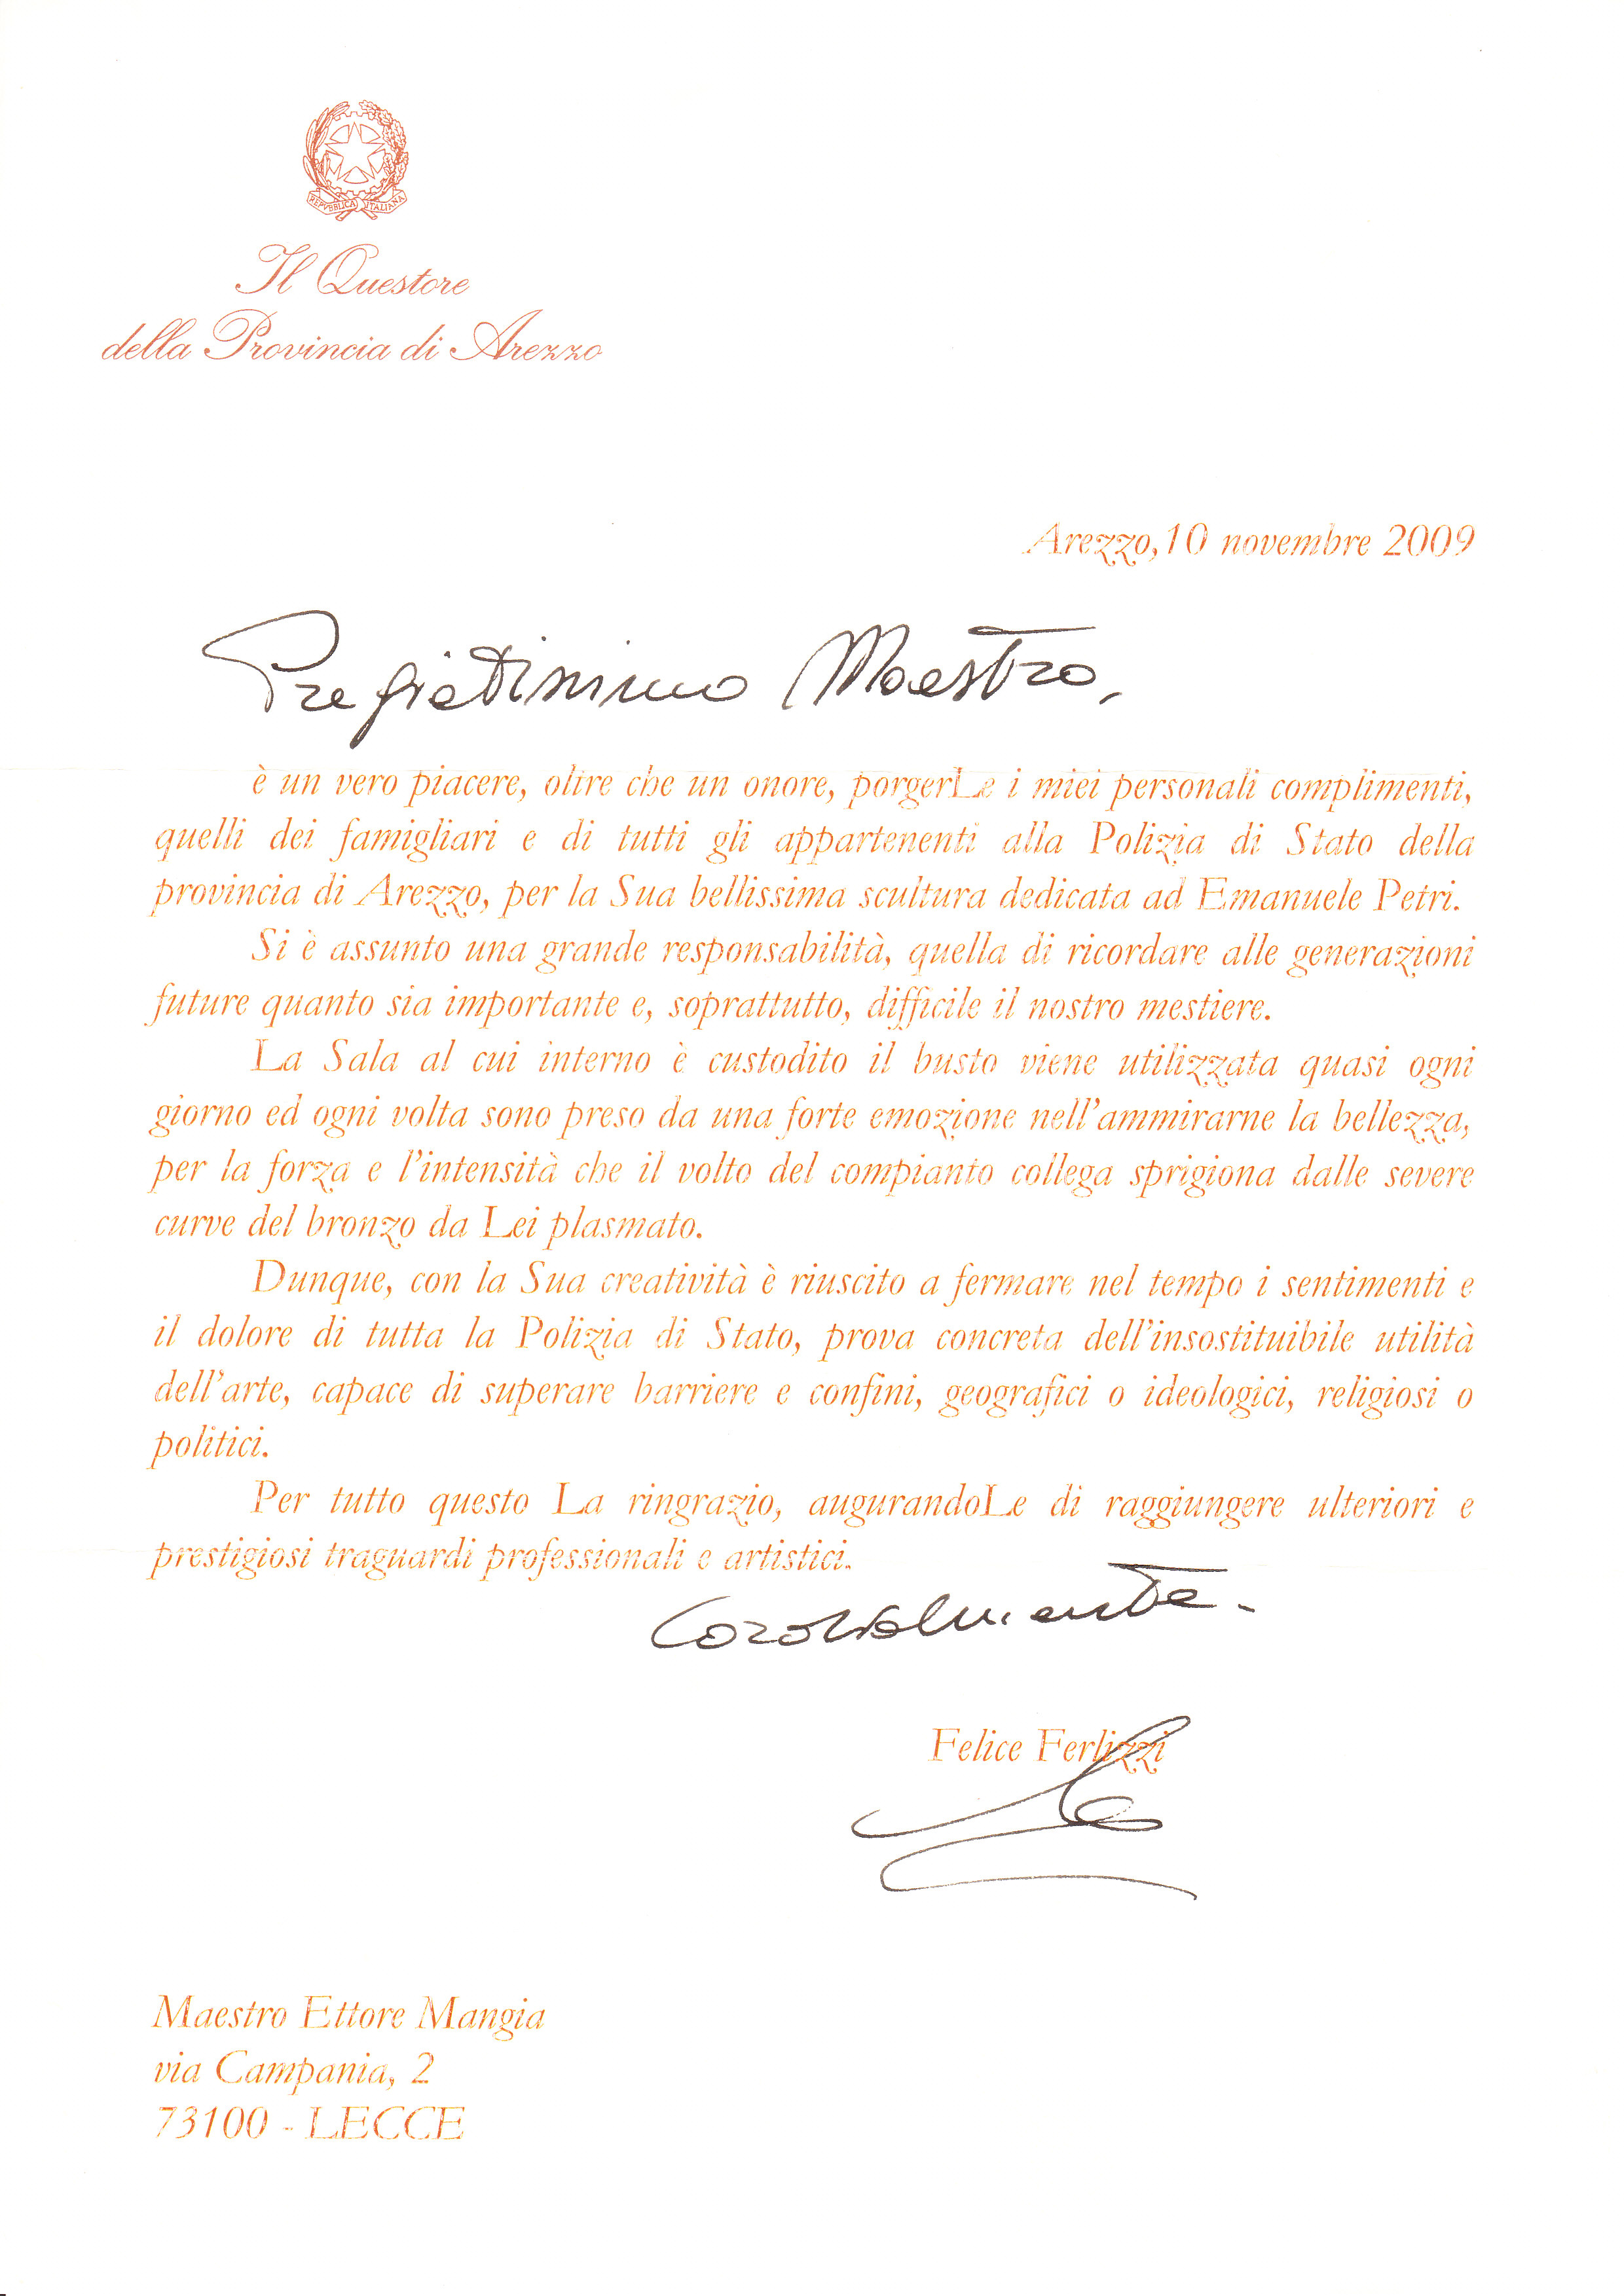 REPVBBLICA ITALIANA
Il Questore
della Provincia di Arezzo
Arezzo,10 novembre 2009
Pregiatissimo Maestro,
è un vero piacere, oltre che un onore, porgerLe i miei personali complimenti,
quelli dei famigliari e di tutti gli appartenenti alla Polizia di Stato della
provincia di Arezzo, per la Sua bellissima scultura dedicata ad Emanuele Petri.
Si è assunto una grande responsabilità, quella di ricordare alle generazioni
future quanto sia importante e, soprattutto, difficile il nostro mestiere.
La Sala al cui interno è custodito il busto viene utilizzata quasi ogni
giorno ed ogni volta sono preso da una forte emozione nell'ammirarne la bellezza,
per la forza e l'intensità che il volto del compianto collega sprigiona dalle severe
curve del bronzo da Lei plasmato.
Dunque, con la Sua creatività è riuscito a fermare nel tempo i sentimenti e
il dolore di tutta la Polizia di Stato, prova concreta dell'insostituibile utilità
dell'arte, capace di superare barriere e confini, geografici o ideologici, religiosi o
politici.
Per tutto questo La ringrazio, augurandoLe di raggiungere ulteriori e
prestigiosi traguardi professionali e artistici.
Cordialmente.
Felice Ferlizzi
Maestro Ettore Mangia
via Campania, 2
73100 - LECCE